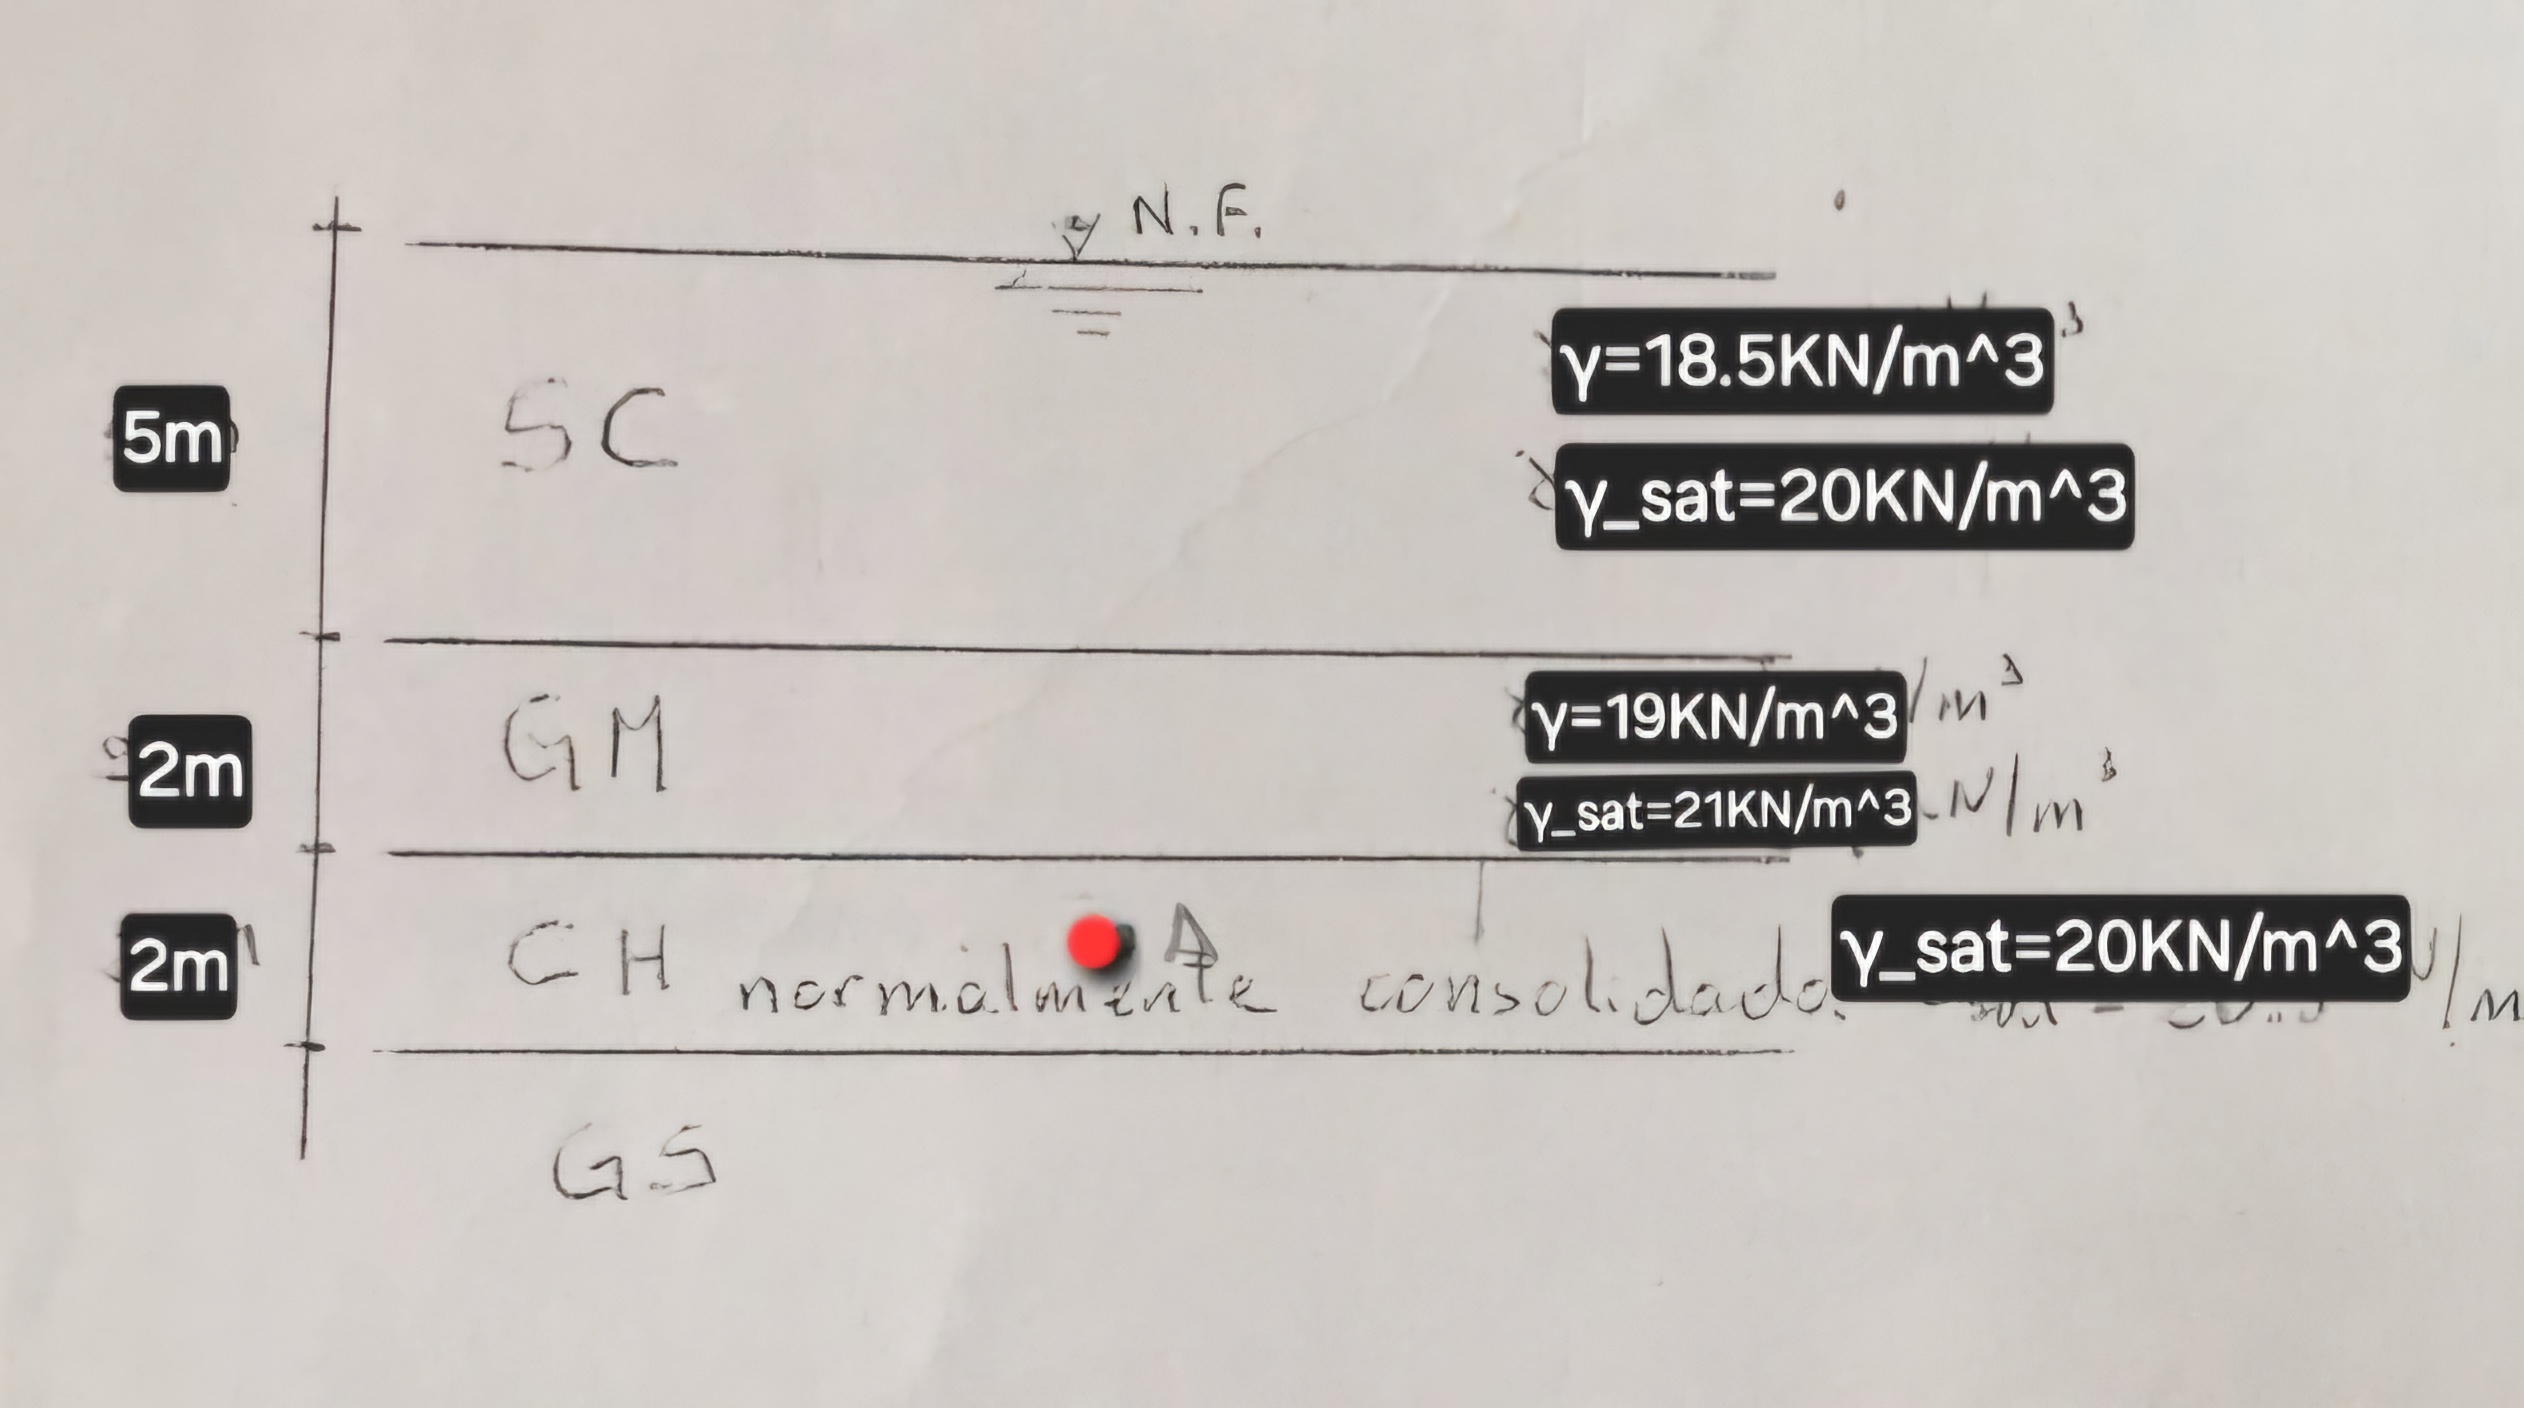 N.F.
γ=18.5KN/m^3
5m
SC
γ_sat=20KN/m^3
γ=19KN/m^3
2m
GM
γ_sat=21KN/m^3
2m
CH normalmente consolidado.
A
γ_sat=20KN/m^3
GS